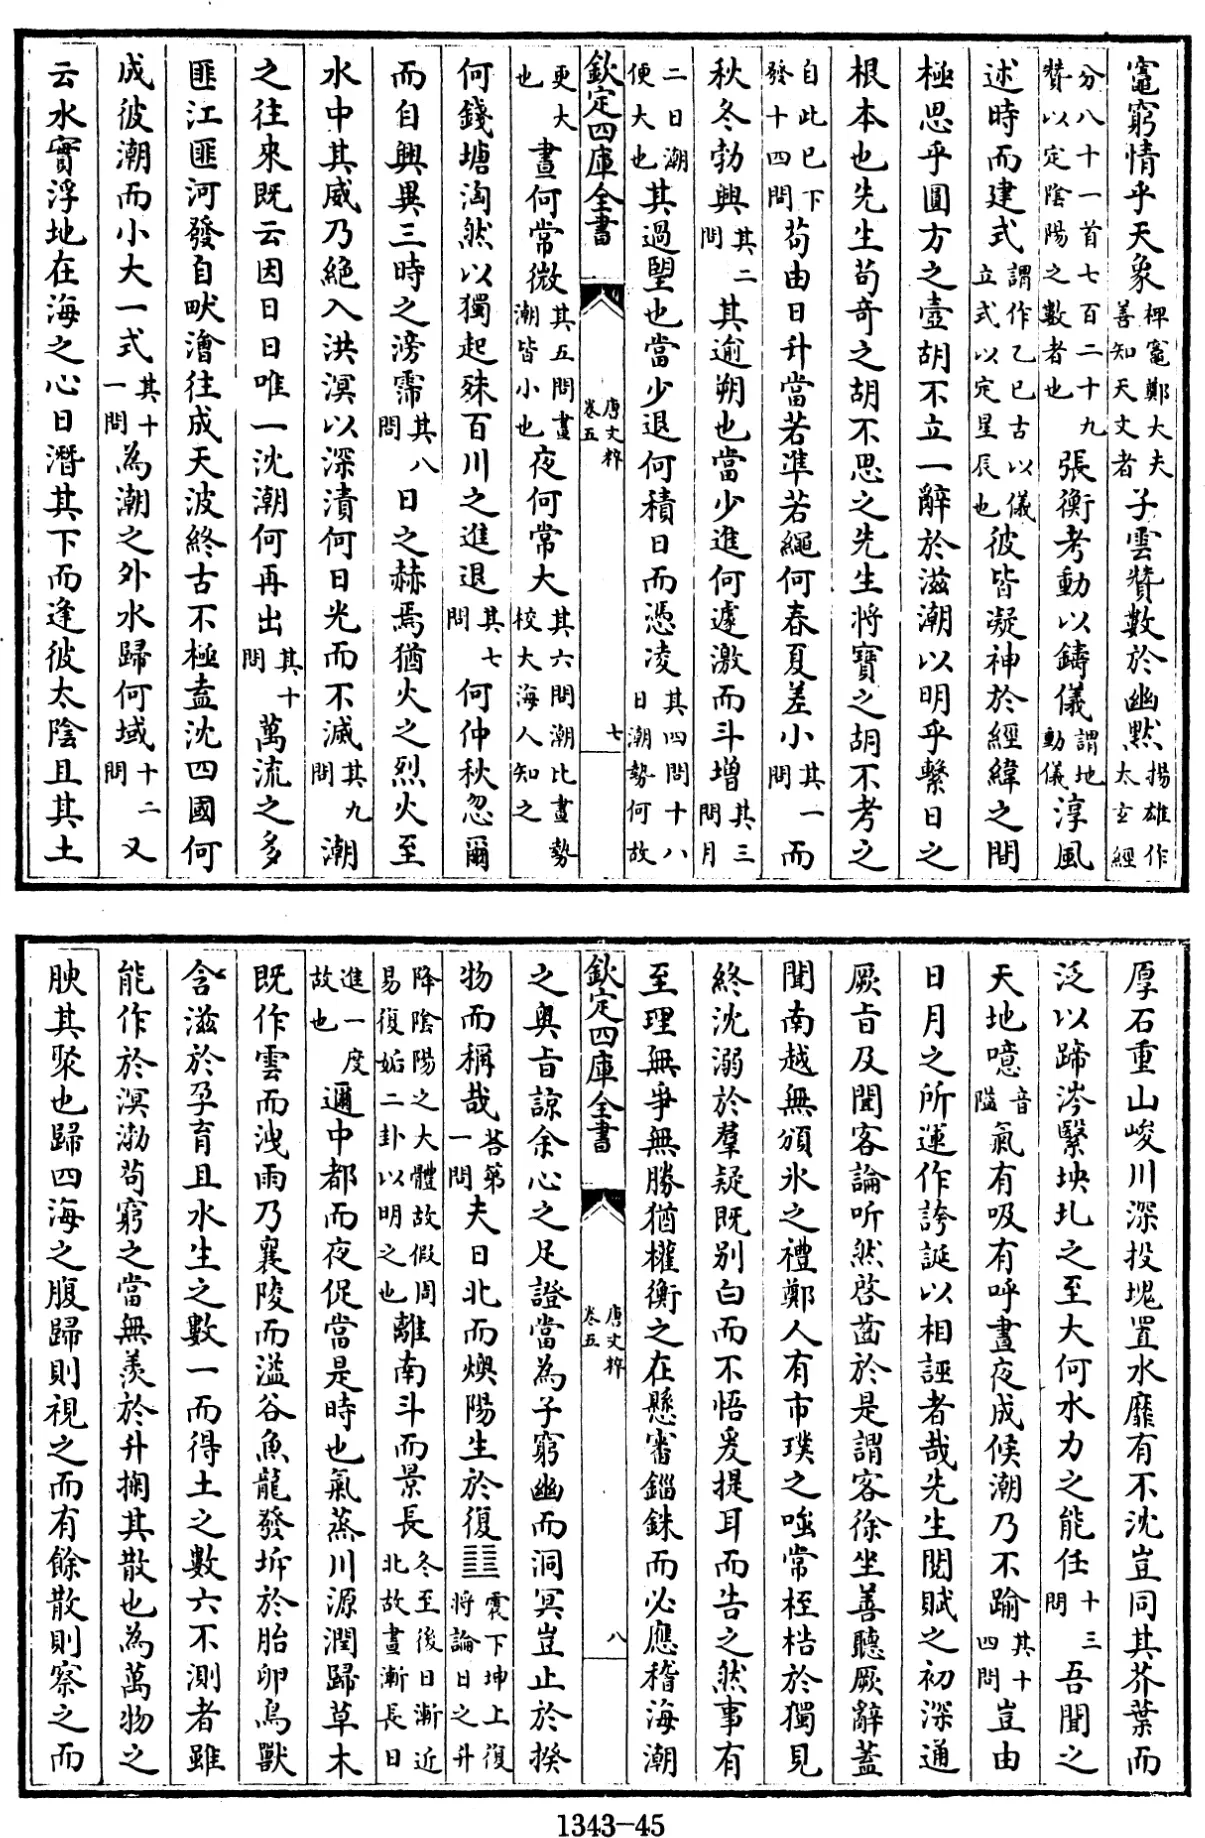 竈窮情乎天象裨竈鄭大夫善知天文者子雲贊數於幽默揚雄作太玄經
分八十一首七百二十九贊以定陰陽之數者也張衡考動以鑄儀謂地動儀淳風
述時而建式謂作乙巳占以儀立式以定星辰也彼皆凝神於經緯之間
極思乎圓方之壼胡不立一辭於滋潮以明乎繫日之
根本也先生苟奇之胡不思之先生將寶之胡不考之
自此已下發十四問苟由日升當若準若繩何春夏差小其一問而
秋冬勃興其二問其逾朔也當少進何遽激而斗增其三問月
二日潮便大也其過望也當少退何積日而憑凌其四問十八日潮勢何故
欽定四庫全書
唐文粹
卷五
七
更大也晝何常微其五問晝潮皆小也夜何常大其六問潮比晝勢校大海人知之
何錢塘洶然以獨起殊百川之進退其七問何仲秋忽爾
而自興異三時之滂霈其八問日之赫焉猶火之烈火至
水中其威乃絶入洪溟以深漬何日光而不滅其九問潮
之往來既云因日日唯一沈潮何再出其十問萬流之多
匪江匪河發自畎澮往成天波終古不極盍沈四國何
成彼潮而小大一式其十一問為潮之外水歸何域十二問又
云水實浮地在海之心日潛其下而逢彼太陰且其土
厚石重山峻川深投塊置水靡有不沈豈同其芥葉而
泛以蹄涔緊坱圠之至大何水力之能任十三問吾聞之
天地噫音隘氣有吸有呼晝夜成候潮乃不踰其十四問豈由
日月之所運作誇誕以相誣者哉先生閲賦之初深通
厥旨及聞客論听然啓齒於是謂客徐坐善聽厥辭蓋
聞南越無頒氷之禮鄭人有市璞之嗤常桎梏於獨見
終沈溺於羣疑既别白而不悟爰提耳而告之然事有
至理無爭無勝猶權衡之在懸審錙銖而必應稽海潮
欽定四庫全書
唐文粹
卷五
八
之奥旨諒余心之足證當為子窮幽而洞冥豈止於揆
物而稱哉荅第一問夫日北而燠陽生於復䷗震下坤上復將論日之升
降陰陽之大體故假周易復姤二卦以明之也離南斗而景長冬至後日漸近北故晝漸長日
進一度故也邇中都而夜促當是時也氣蒸川源潤歸草木
既作雲而洩雨乃襄陵而溢谷魚龍發坼於胎卵鳥獸
含滋於孕育且水生之數一而得土之數六不測者雖
能作於溟渤苟窮之當無羨於升掬其散也為萬物之
腴其聚也歸四海之腹歸則視之而有餘散則察之而
1343-45